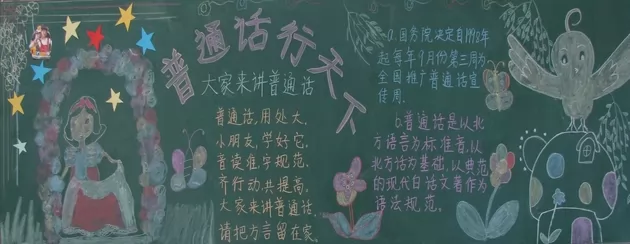 普通话行天下
大家来讲普通话
普通话,用处大,
小朋友,学好它,
普读准字规范,
齐行动,共提高,
大家来讲普通话,
请把方言留在家。
a.国务院决定自1998年
起每年9月份第三周为
全国推广普通话宣
传周.
b.普通话是以北
方语言为标准者,以
北方话为基础,以典范
的现代白话文著作为
语法规范。